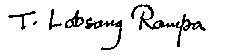 T. Lobsang Rampa